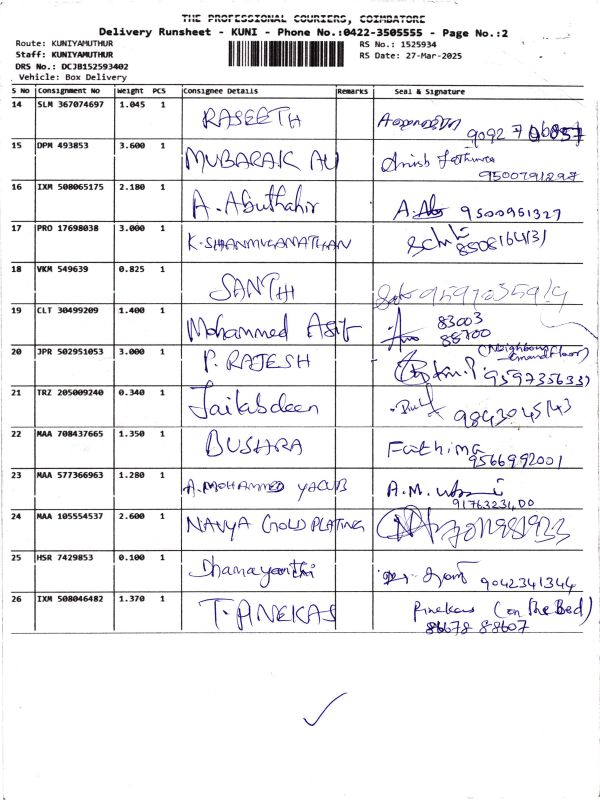 THE PROFESSIONAL COURIERS, COIMBATORE
Delivery Runsheet - KUNI - Phone No.:0422-3505555 - Page No.:2
Route: KUNIYAMUTHUR
Staff: KUNIYAMUTHUR
DRS No.: DCJB152593402
Vehicle: Box Delivery
RS No.: 1525934
RS Date: 27-Mar-2025
S No Consignment No Weight PCS Consignee Details Remarks Seal & Signature
14 SLM 367074697 1.045 1 RASEETH
15 DPM 493853 3.600 1 MUBARAK ALI Anish Fathima
9500791297
16 IXM 508065175 2.180 1 A. Abuthahir 9500951327
17 PRO 17698038 3.000 1 K. SHANMUGANATHAN
8508164131
18 VKM 549639 0.825 1 SANTHI
19 CLT 30499209 1.400 1 Mohammed Asif 83003
88700
20 JPR 502951053 3.000 1 P. RAJESH (Neighbour
Ground Floor)
9597356331
21 TRZ 205009240 0.340 1 Jaikabdeen 9843045143
22 MAA 708437665 1.350 1 BUSHRA Fathima
9566992001
23 MAA 577366963 1.280 1 A. MOHAMMED YACUB A.M.
24 MAA 105554537 2.600 1 NAVYA GOLD PLATING
25 HSR 7429853 0.100 1 Dhanayanthi 9042341344
26 IXM 508046482 1.370 1 T. PINEKAS Pinekas (on the Bed)
86678 88607